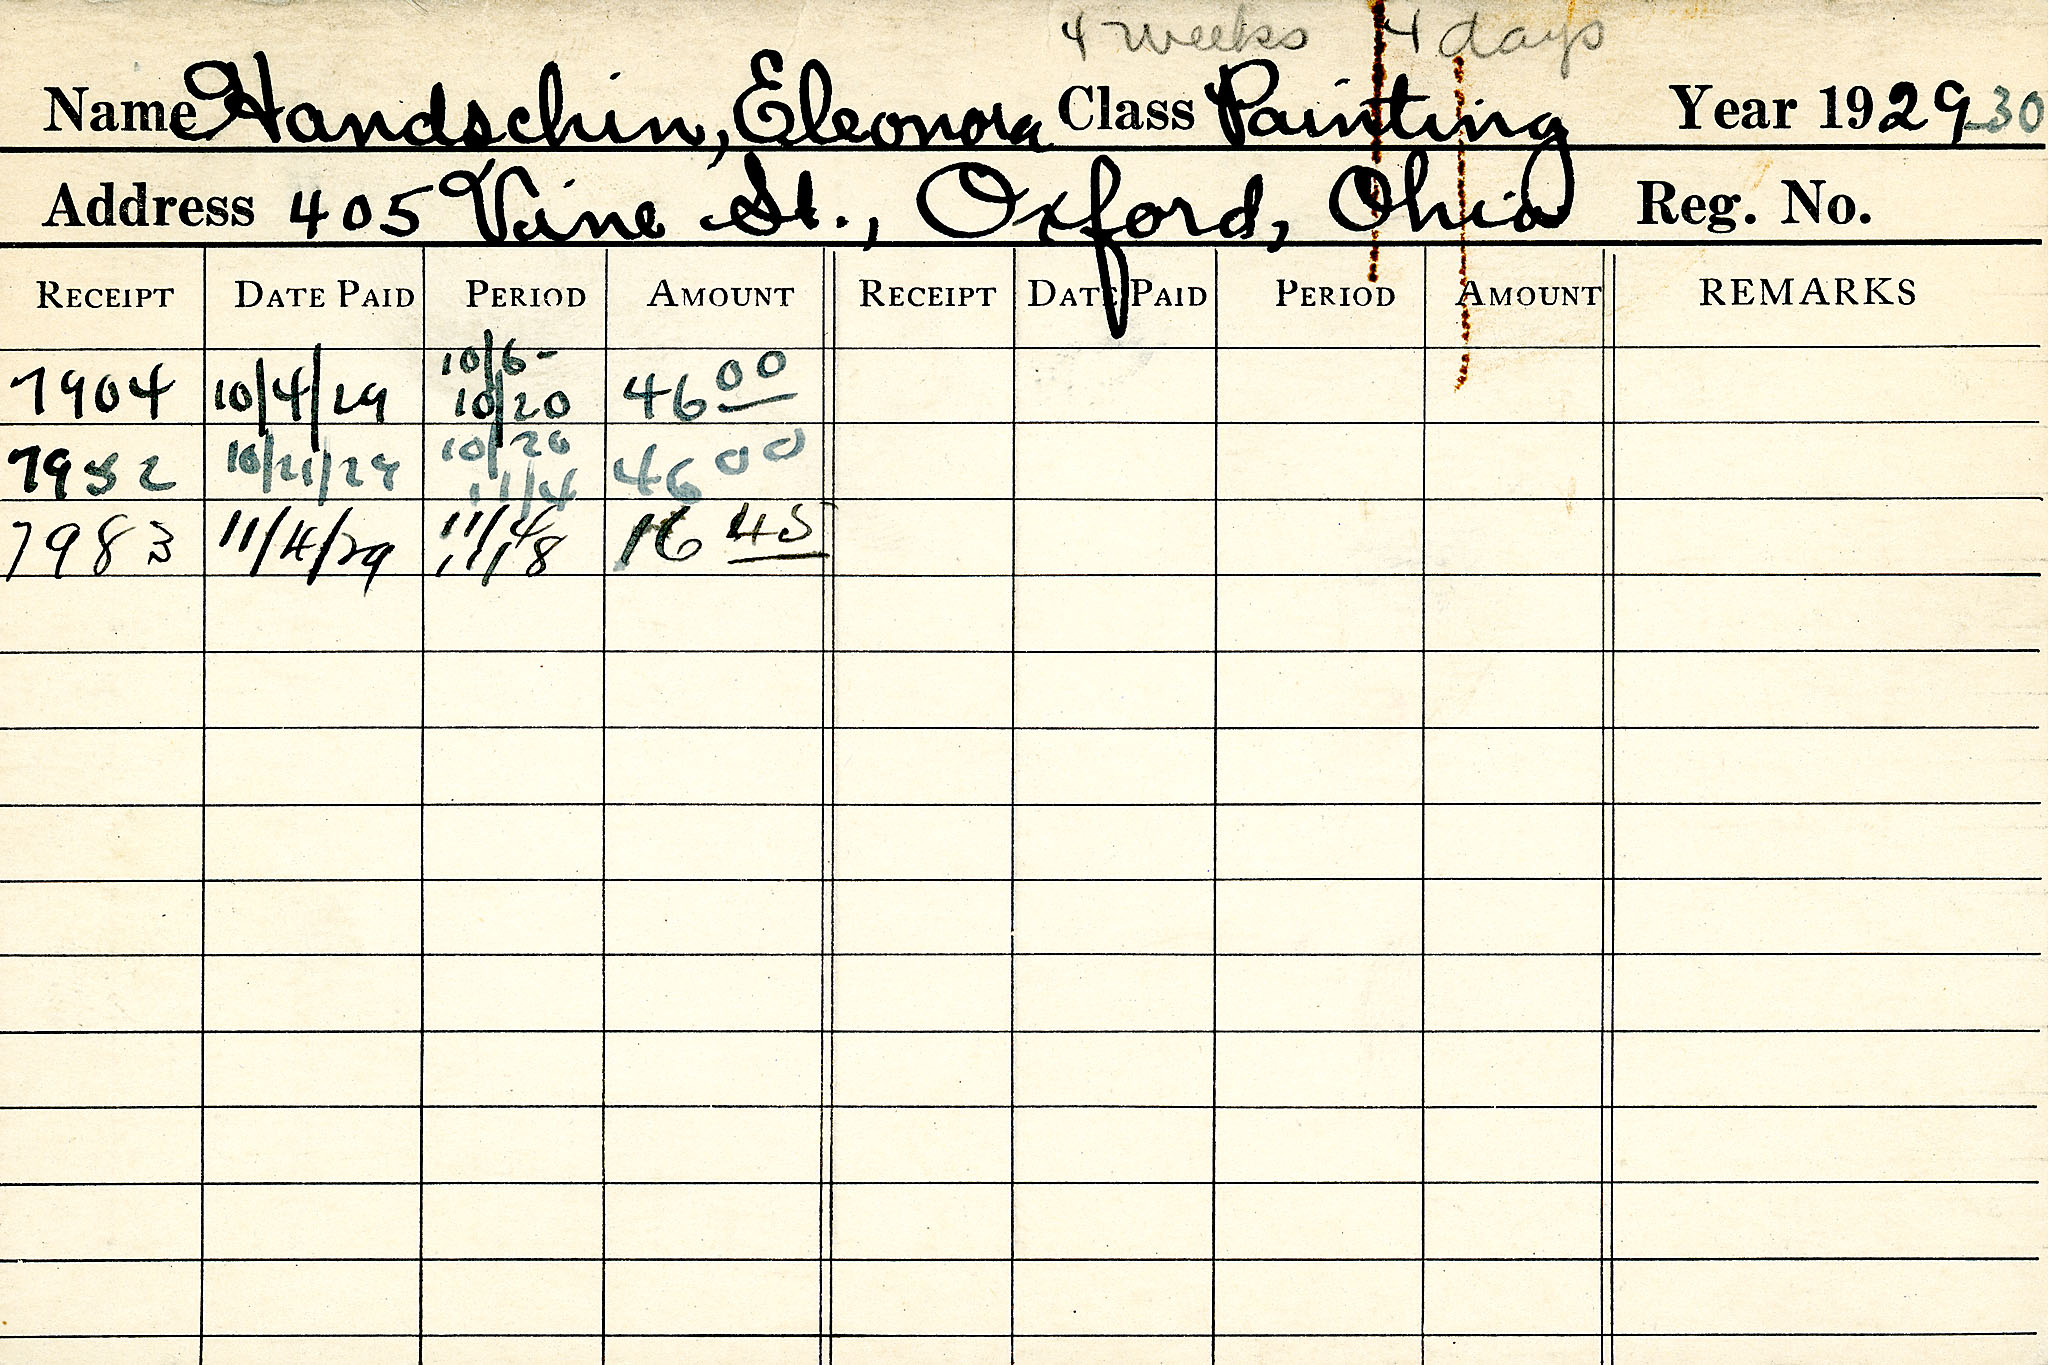 4 weeks 4 days
Name Handschin, Eleonora Class Painting Year 1929-30
Address 405 Vine St., Oxford, Ohio Reg. No.
RECEIPT DATE PAID PERIOD AMOUNT RECEIPT DATE PAID PERIOD AMOUNT REMARKS
7904 10/4/29 10/6- 10/20 46 00
7952 10/21/29 10/20 11/4 46 00
7983 11/4/29 11/4 11/8 16 45